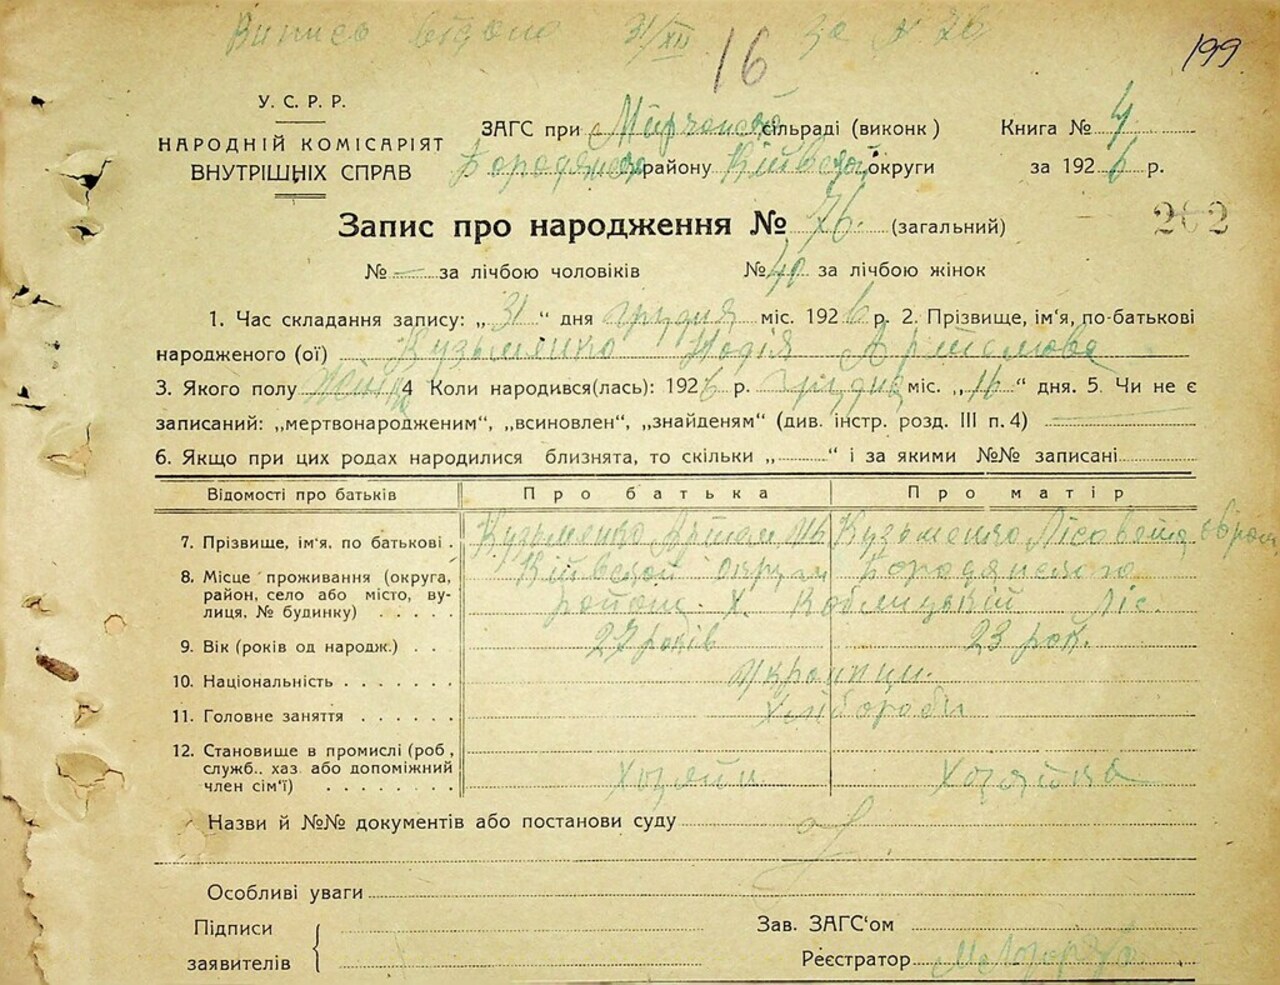 Випись видано 31/XII За № 76
16
199
У. С. Р. Р.
НАРОДНІЙ КОМІСАРІЯТ
ВНУТРІШНІХ СПРАВ
ЗАГС при Мирчанской сільраді (виконк)
Бородянско району Київской округи
Книга № 4
за 1926 р.
Запис про народження № 76. (загальний)
202
№ — за лічбою чоловіків № 40 за лічбою жінок
1. Час складання запису: „31“ дня грудня міс. 1926 р. 2. Прізвище, ім'я, по-батькові
народженого (ої) Кузьменко Надія Артемова
3. Якого полу 4 Коли народився(лась): 1926 р. грудня міс. „16“ дня. 5. Чи не є
записаний: „мертвонародженим“, „всиновлен“, „знайденям“ (див. інстр. розд. III п. 4)
6. Якщо при цих родах народилися близнята, то скільки „ “ і за якими №№ записані
Відомості про батьків Про батька Про матір
7. Прізвище, ім'я, по батькові . Кузьменко Артем Кузьменко Лісавета
8. Місце проживання (округа, Київской округи Бородянского
район, село або місто, ву-
лиця, № будинку) . . . . . район. Х. Коблицький Ліс.
9. Вік (років од народж.) . . 27 років 23 рок.
10. Національність . . . . . . . Українци.
11. Головне заняття . . . . . . Хліборобы
12. Становище в промислі (роб.,
служб.. хаз або допоміжний
член сім'ї) . . . . . . . . Хозяйн Хозяйка
Назви й №№ документів або постанови суду
Особливі уваги
Підписи
заявителів
Зав. ЗАГС'ом
Реєстратор